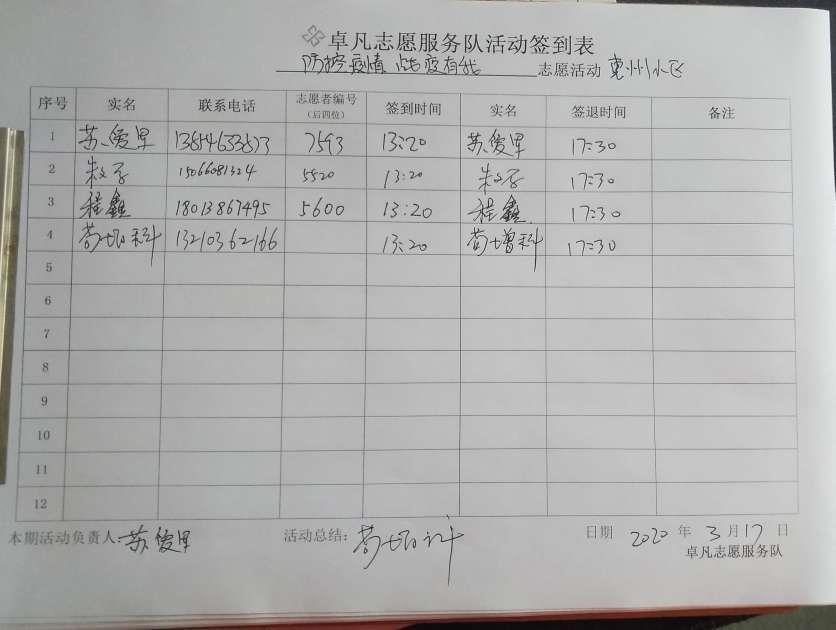 卓凡志愿服务队活动签到表
防控疫情 战疫有我 志愿活动
序号 实名 联系电话 志愿者编号（后四位） 签到时间 实名 签退时间 备注
1 苏俊里 7593 13:20 苏俊里 17:30
2 15066081324 5520 13:20 17:30
3 程鑫 18013867495 5600 13:20 程鑫 17:30
4 13210362166 13:20 17:30
5
6
7
8
9
10
11
12
本期活动负责人: 苏俊里 活动总结: 日期 2020 年 3 月 17 日
卓凡志愿服务队